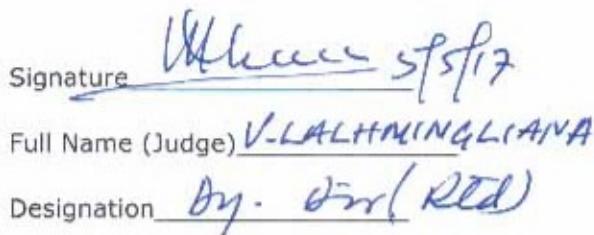 Signature 5/5/17
Full Name (Judge) V. LALHMINGLIANA
Designation Dy. Dir (Rtd)